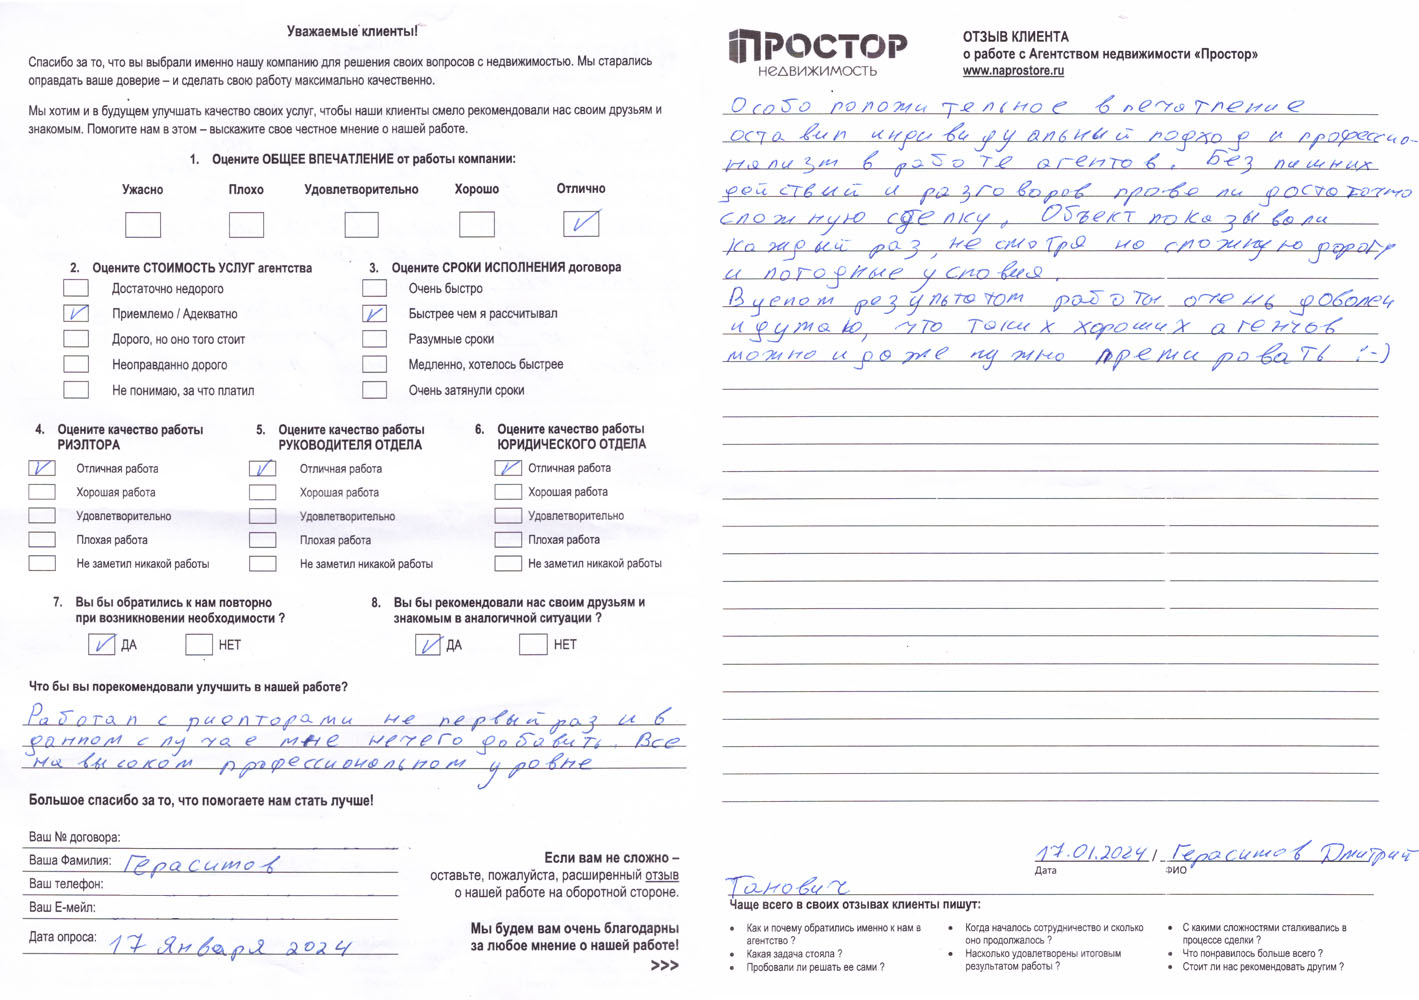 Уважаемые клиенты!
Спасибо за то, что вы выбрали именно нашу компанию для решения своих вопросов с недвижимостью. Мы старались
оправдать ваше доверие – и сделать свою работу максимально качественно.
Мы хотим и в будущем улучшать качество своих услуг, чтобы наши клиенты смело рекомендовали нас своим друзьям и
знакомым. Помогите нам в этом – выскажите свое честное мнение о нашей работе.
1. Оцените ОБЩЕЕ ВПЕЧАТЛЕНИЕ от работы компании:
Ужасно Плохо Удовлетворительно Хорошо Отлично
2. Оцените СТОИМОСТЬ УСЛУГ агентства
Достаточно недорого
Приемлемо / Адекватно
Дорого, но оно того стоит
Неоправданно дорого
Не понимаю, за что платил
3. Оцените СРОКИ ИСПОЛНЕНИЯ договора
Очень быстро
Быстрее чем я рассчитывал
Разумные сроки
Медленно, хотелось быстрее
Очень затянули сроки
4. Оцените качество работы
РИЭЛТОРА
Отличная работа
Хорошая работа
Удовлетворительно
Плохая работа
Не заметил никакой работы
5. Оцените качество работы
РУКОВОДИТЕЛЯ ОТДЕЛА
Отличная работа
Хорошая работа
Удовлетворительно
Плохая работа
Не заметил никакой работы
6. Оцените качество работы
ЮРИДИЧЕСКОГО ОТДЕЛА
Отличная работа
Хорошая работа
Удовлетворительно
Плохая работа
Не заметил никакой работы
7. Вы бы обратились к нам повторно
при возникновении необходимости ?
ДА НЕТ
8. Вы бы рекомендовали нас своим друзьям и
знакомым в аналогичной ситуации ?
ДА НЕТ
Что бы вы порекомендовали улучшить в нашей работе?
Работал с риелторами не первый раз и в
данном случае мне нечего добавить. Все
на высоком профессиональном уровне
Большое спасибо за то, что помогаете нам стать лучше!
Ваш № договора:
Ваша Фамилия: Герасимов
Ваш телефон:
Ваш Е-мейл:
Дата опроса: 17 Января 2024
Если вам не сложно –
оставьте, пожалуйста, расширенный отзыв
о нашей работе на оборотной стороне.
Мы будем вам очень благодарны
за любое мнение о нашей работе!
>>>
ПРОСТОР
НЕДВИЖИМОСТЬ
ОТЗЫВ КЛИЕНТА
о работе с Агентством недвижимости «Простор»
www.naprostore.ru
Особо положительное впечатление
оставил индивидуальный подход и профессио-
нализм в работе агентов. Без лишних
действий и разговоров провели достаточно
сложную сделку. Объект показывали
каждый раз, не смотря на сложную дорогу
и погодные условия.
В целом результатом работы очень доволен
и думаю, что таких хороших агентов
можно и даже нужно премировать :-)
17.01.2024 / Герасимов Дмитрий
Дата ФИО
Танович
Чаще всего в своих отзывах клиенты пишут:
• Как и почему обратились именно к нам в
агентство ?
• Какая задача стояла ?
• Пробовали ли решать ее сами ?
• Когда началось сотрудничество и сколько
оно продолжалось ?
• Насколько удовлетворены итоговым
результатом работы ?
• С какими сложностями сталкивались в
процессе сделки ?
• Что понравилось больше всего ?
• Стоит ли нас рекомендовать другим ?